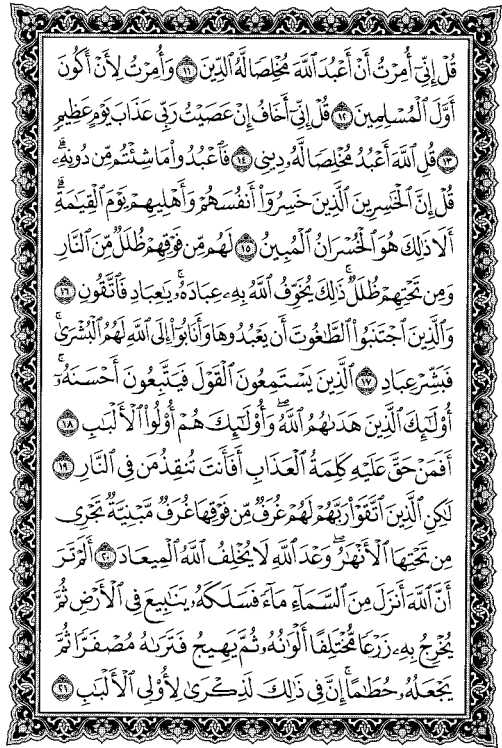 قُلْ إِنِّىٓ أُمِرْتُ أَنْ أَعْبُدَ ٱللَّهَ مُخْلِصًا لَّهُ ٱلدِّينَ ١١ وَأُمِرْتُ لِأَنْ أَكُونَ
أَوَّلَ ٱلْمُسْلِمِينَ ١٢ قُلْ إِنِّىٓ أَخَافُ إِنْ عَصَيْتُ رَبِّى عَذَابَ يَوْمٍ عَظِيمٍ
١٣ قُلِ ٱللَّهَ أَعْبُدُ مُخْلِصًا لَّهُۥ دِينِى ١٤ فَٱعْبُدُوا۟ مَا شِئْتُم مِّن دُونِهِۦۗ
قُلْ إِنَّ ٱلْخَٰسِرِينَ ٱلَّذِينَ خَسِرُوٓا۟ أَنفُسَهُمْ وَأَهْلِيهِمْ يَوْمَ ٱلْقِيَٰمَةِۗ
أَلَا ذَٰلِكَ هُوَ ٱلْخُسْرَانُ ٱلْمُبِينُ ١٥ لَهُم مِّن فَوْقِهِمْ ظُلَلٌ مِّنَ ٱلنَّارِ
وَمِن تَحْتِهِمْ ظُلَلٌۚ ذَٰلِكَ يُخَوِّفُ ٱللَّهُ بِهِۦ عِبَادَهُۥۚ يَٰعِبَادِ فَٱتَّقُونِ ١٦
وَٱلَّذِينَ ٱجْتَنَبُوا۟ ٱلطَّٰغُوتَ أَن يَعْبُدُوهَا وَأَنَابُوٓا۟ إِلَى ٱللَّهِ لَهُمُ ٱلْبُشْرَىٰۚ
فَبَشِّرْ عِبَادِ ١٧ ٱلَّذِينَ يَسْتَمِعُونَ ٱلْقَوْلَ فَيَتَّبِعُونَ أَحْسَنَهُۥٓۚ
أُو۟لَٰٓئِكَ ٱلَّذِينَ هَدَىٰهُمُ ٱللَّهُۖ وَأُو۟لَٰٓئِكَ هُمْ أُو۟لُوا۟ ٱلْأَلْبَٰبِ ١٨
أَفَمَنْ حَقَّ عَلَيْهِ كَلِمَةُ ٱلْعَذَابِ أَفَأَنتَ تُنقِذُ مَن فِى ٱلنَّارِ ١٩
لَٰكِنِ ٱلَّذِينَ ٱتَّقَوْا۟ رَبَّهُمْ لَهُمْ غُرَفٌ مِّن فَوْقِهَا غُرَفٌ مَّبْنِيَّةٌ تَجْرِى
مِن تَحْتِهَا ٱلْأَنْهَٰرُۖ وَعْدَ ٱللَّهِ لَا يُخْلِفُ ٱللَّهُ ٱلْمِيعَادَ ٢٠ أَلَمْ تَرَ
أَنَّ ٱللَّهَ أَنزَلَ مِنَ ٱلسَّمَآءِ مَآءً فَسَلَكَهُۥ يَنَٰبِيعَ فِى ٱلْأَرْضِ ثُمَّ
يُخْرِجُ بِهِۦ زَرْعًا مُّخْتَلِفًا أَلْوَٰنُهُۥ ثُمَّ يَهِيجُ فَتَرَىٰهُ مُصْفَرًّا ثُمَّ
يَجْعَلُهُۥ حُطَٰمًاۚ إِنَّ فِى ذَٰلِكَ لَذِكْرَىٰ لِأُو۟لِى ٱلْأَلْبَٰبِ ٢١